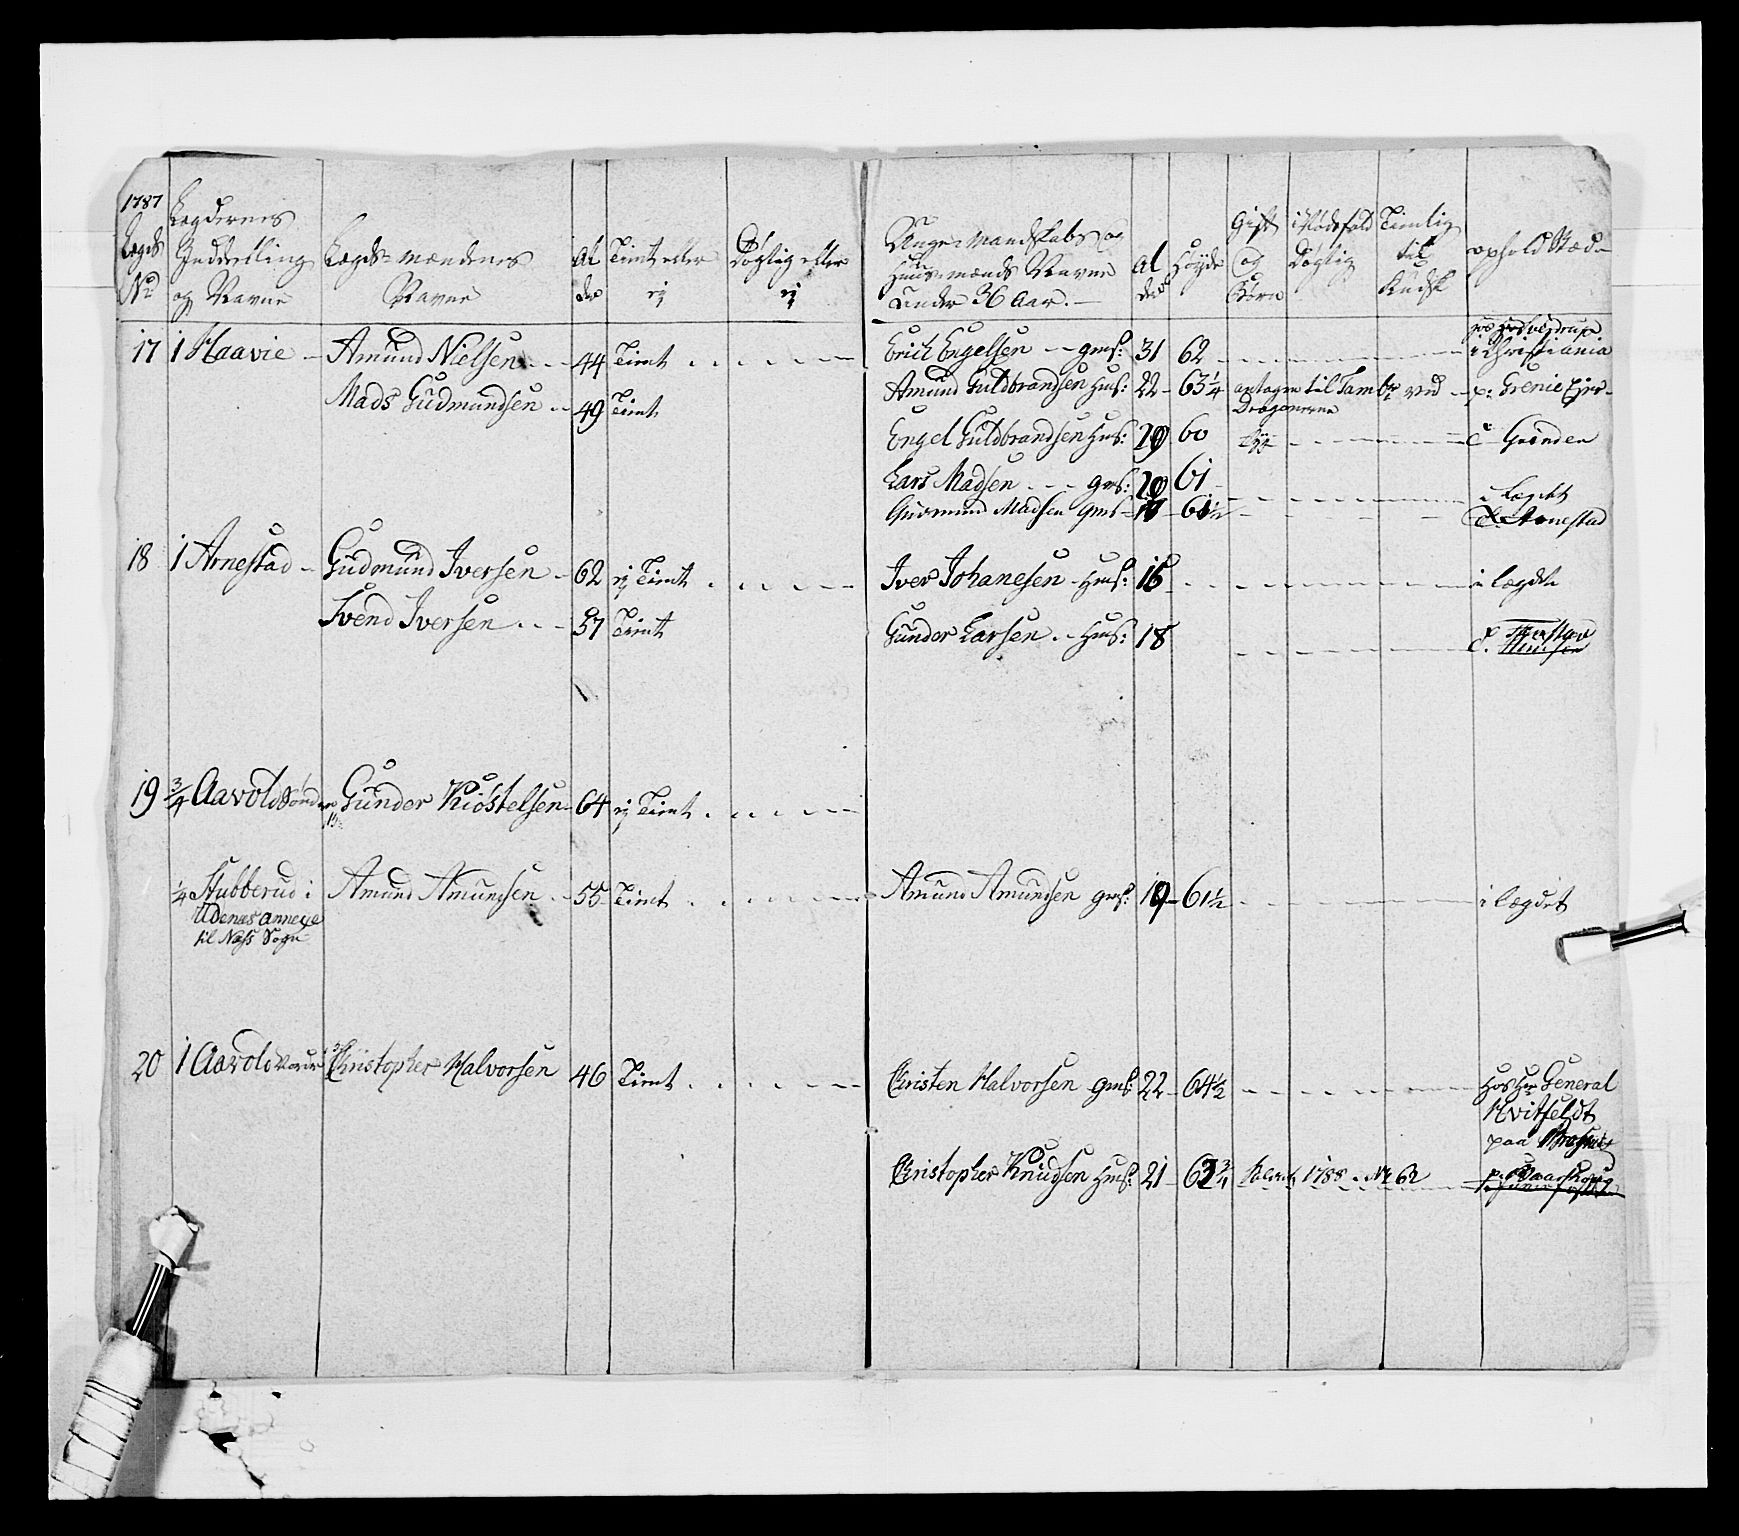 1787
Legds No
Legdernes Inddeeling og Navne
Legds-mændenes Navne
Al der
Tient eller ej
Dygtig eller ej
Unge Mandskabs og Huusmænds Navne under 36 Aar.
Al der
Høyde
Gift og Børn
i Nødsfald Dygtig
Tienlig til Kudsk
opholdStæd
17 1 Haavie - Amund Nielsen - - 44 Tient
Erich Engelsen - - gms: 31 62 - i Christiania
Mads Gudmundsen - - 49 Tient
Amund Guldbrandsen Hus: 22 - 63 1/4 antagen til Tambr ved Dragonerne p: Grenie Eier
Engel Guldbrandsen Hus: 20 60 Grinden
Lars Madsen - - - gms: 20 61 i Legdet
Gudmund Madsen Gms - 17 - 61 1/2 Arnestad
18 1 Arnestad - Gudmund Iversen - 62 ej Tient
Iver Johanesen - Hus: 16 - i legdet
Svend Iversen - - - 57 Tient
Gunder Larsen - - Hus: 18
19 3/4 Aavold Søndre Gunder Kiøstelsen - 64 ej Tient
1/4 Stubberud i Udenæs annexe til Næss Sogn
Amund Amundsen - - 55 Tient
Amund Amundsen gms: 19 - 61 1/2 - i legdet
20 1 Aavold Nordre Christopher Halvorsen 46 Tient
Christen Halvorsen gms: 22 - 64 1/2 - Hos Hr General
Hvitfeldt
paa
Christopher Knudsen Hus: 21 - 63 3/4 1788 - No 62